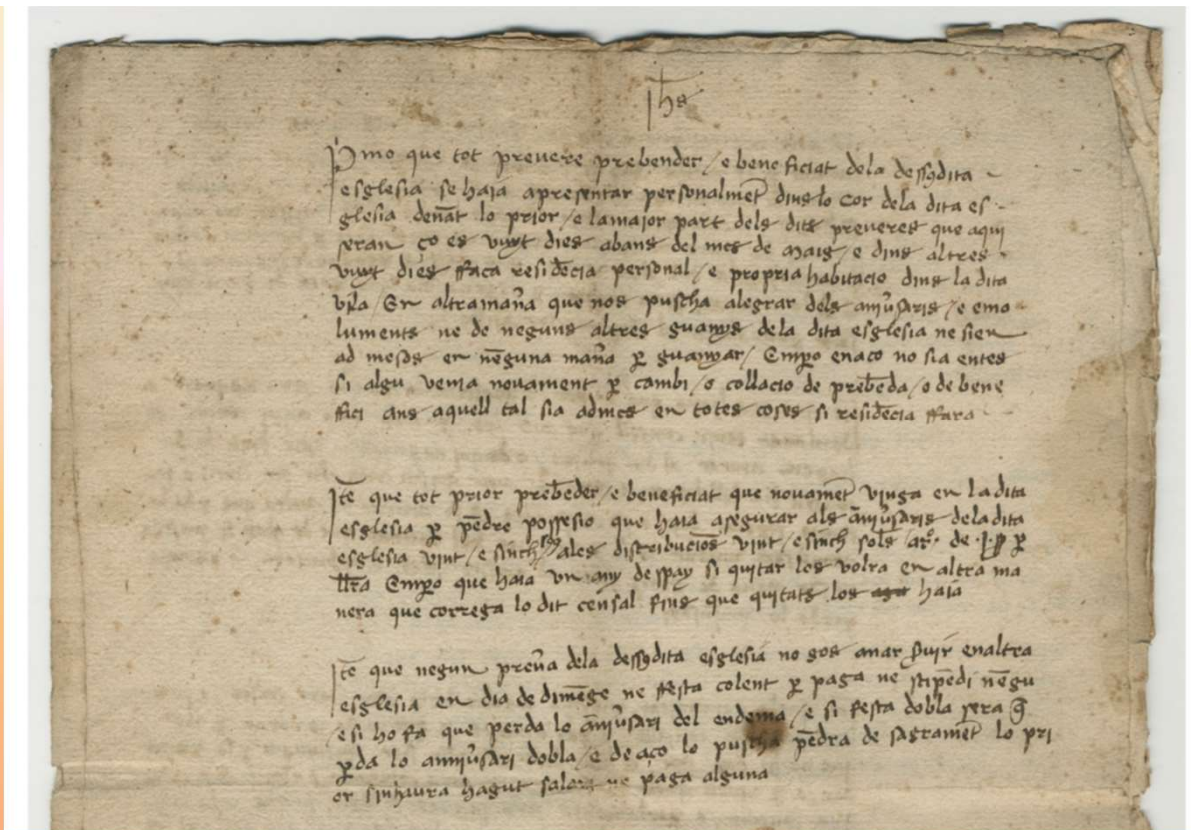 Jhs
Pmo que tot prevere prebender / e beneficiat dela dessusdita
esglesia se haia apresentar personalmet dins lo cor dela dita es
glesia denat lo prior / e lamaior part dels dits preveres que aqui
seran ço es vuyt dies abans del mes de maig / e dins altres
vuyt dies ffaca residecia personal / e propria habitacio dins la dita
vila / En altra mana que nos puscha alegrar dels anivsaris / e emo
luments ne de neguns altres guanys dela dita esglesia ne sien
ad mesos en neguna mana p guanyar / Empo enaco no sia entes
si algu venia novament p cambi / o collacio de prebeda / o de bene
ffici ans aquell tal sia admes en totes coses si residecia ffara
Ite que tot prior prebeder / e beneficiat que novamet vinga en la dita
esglesia p pedre possesio que haia asegurar als anivsaris dela dita
esglesia vint / e sinch ss ales distribucios vint / e sinch sols de p
llra Empo que haia un any despay si quitar los volra en altra ma
nera que correga lo dit censal fins que quitats los haia
Ite que negun preve dela dessusdita esglesia no gos anar svir enaltra
esglesia en dia de dimege ne ffesta colent p paga ne stipedi negu
e si ho fa que perda lo anivsari del endema / e si festa dobla sera q
pda lo annivsari dobla / e de aço lo puscha pedra de sagramet lo pri
or sinhaura hagut salari ne paga alguna